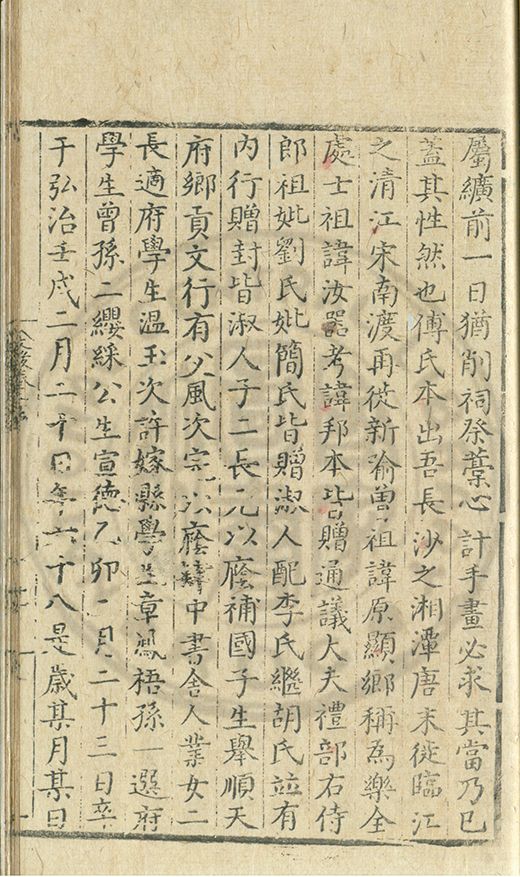 屬纊前一日猶削祠祭藁心計手畫必求其當乃已
蓋其性然也傅氏本出吾長沙之湘潭唐末徙臨江
之清江宋南渡再徙新喻曾祖諱原顯鄉稱為樂全
處士祖諱汝器考諱邦本皆贈通議大夫禮部右侍
郎祖妣劉氏妣簡氏皆贈淑人配李氏繼胡氏竝有
內行贈封皆淑人子二長元以廕補國子生舉順天
府鄉貢文行有父風次完以廕中書舍人業女二
長適府學生溫玉次許嫁縣學生章鳳梧孫一選府
學生曾孫二纓綵公生宣德乙卯月二十三日卒
于弘治壬戌二月二十日年六十八是歲某月某日